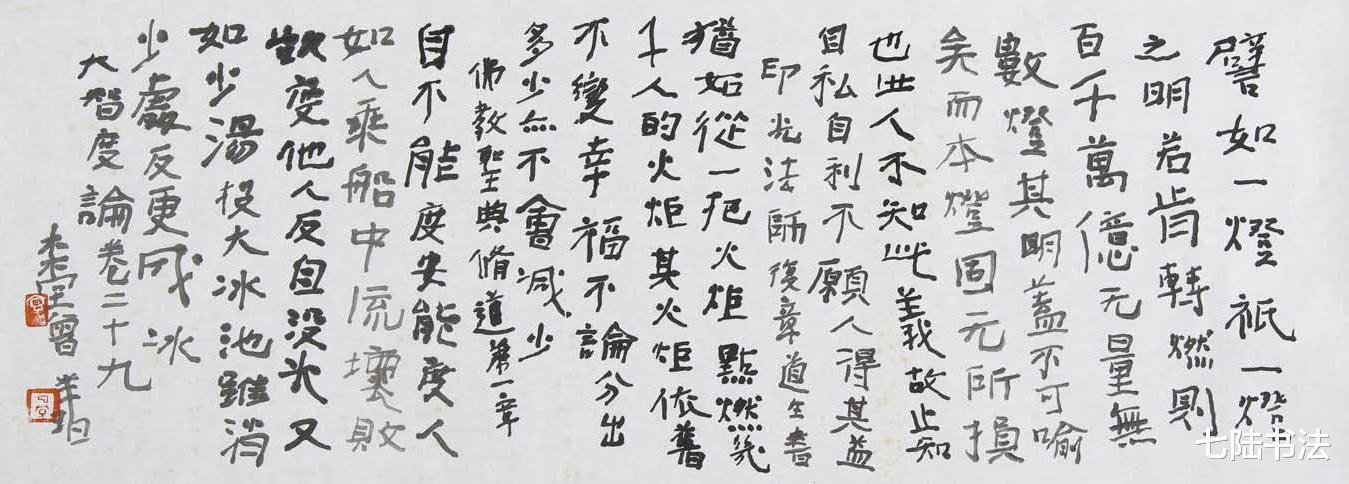 譬如一燈祇一燈
之明若肯轉燃則
百千萬億无量無
數燈其明蓋不可喻
矣而本燈固无所損
也世人不知此義故止知
自私自利不願人得其益
印光法師復章道生書
猶如從一把火炬點燃幾
千人的火炬其火炬依舊
不變幸福不論分出
多少亦不會減少
佛教聖典脩道第一章
自不能度安能度人
如人乘船中流壞敗
欲度他人反自没水又
如少湯投大冰池雖消
少處反更成冰
大智度論卷二十九
曾
七陆书法